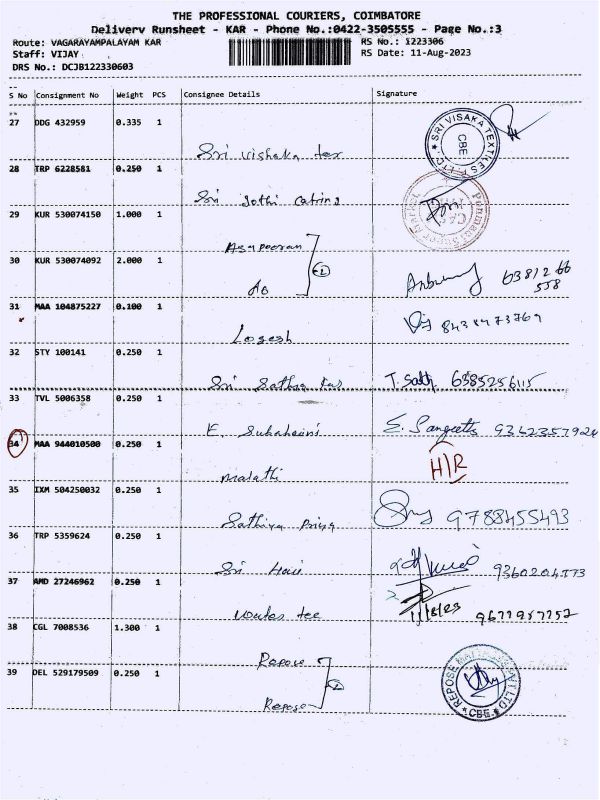 THE PROFESSIONAL COURIERS, COIMBATORE
Delivery Runsheet - KAR - Phone No.:0422-3505555 - Page No.:3
Route: VAGARAYAMPALAYAM KAR
RS No.: 1223306
Staff: VIJAY
RS Date: 11-Aug-2023
DRS No.: DCJB122330603
S No Consignment No Weight PCS Consignee Details Signature
27 DDG 432959 0.335 1
Sri Vishaka tex
SRI VISAKA TEXTILES CBE
28 TRP 6228581 0.250 1
Sri Jothi
29 KUR 530074150 1.000 1
30 KUR 530074092 2.000 1
Do
63812 66
558
31 MAA 104875227 0.100 1
Logesh
32 STY 100141 0.250 1
Sri Sathya
T. Sath 6385256115
33 TVL 5006358 0.250 1
E. Sangeetha 9362357924
34 MAA 944010500 0.250 1
Malathi
H/R
35 IXM 504250032 0.250 1
Sathiya Priya
9788455493
36 TRP 5359624 0.250 1
Sri Hari
37 AMD 27246962 0.250 1
11/8/23
38 CGL 7008536 1.300 1
Repose
39 DEL 529179509 0.250 1
Repose
2
REPOSE MATTRESS PVT LTD CBE